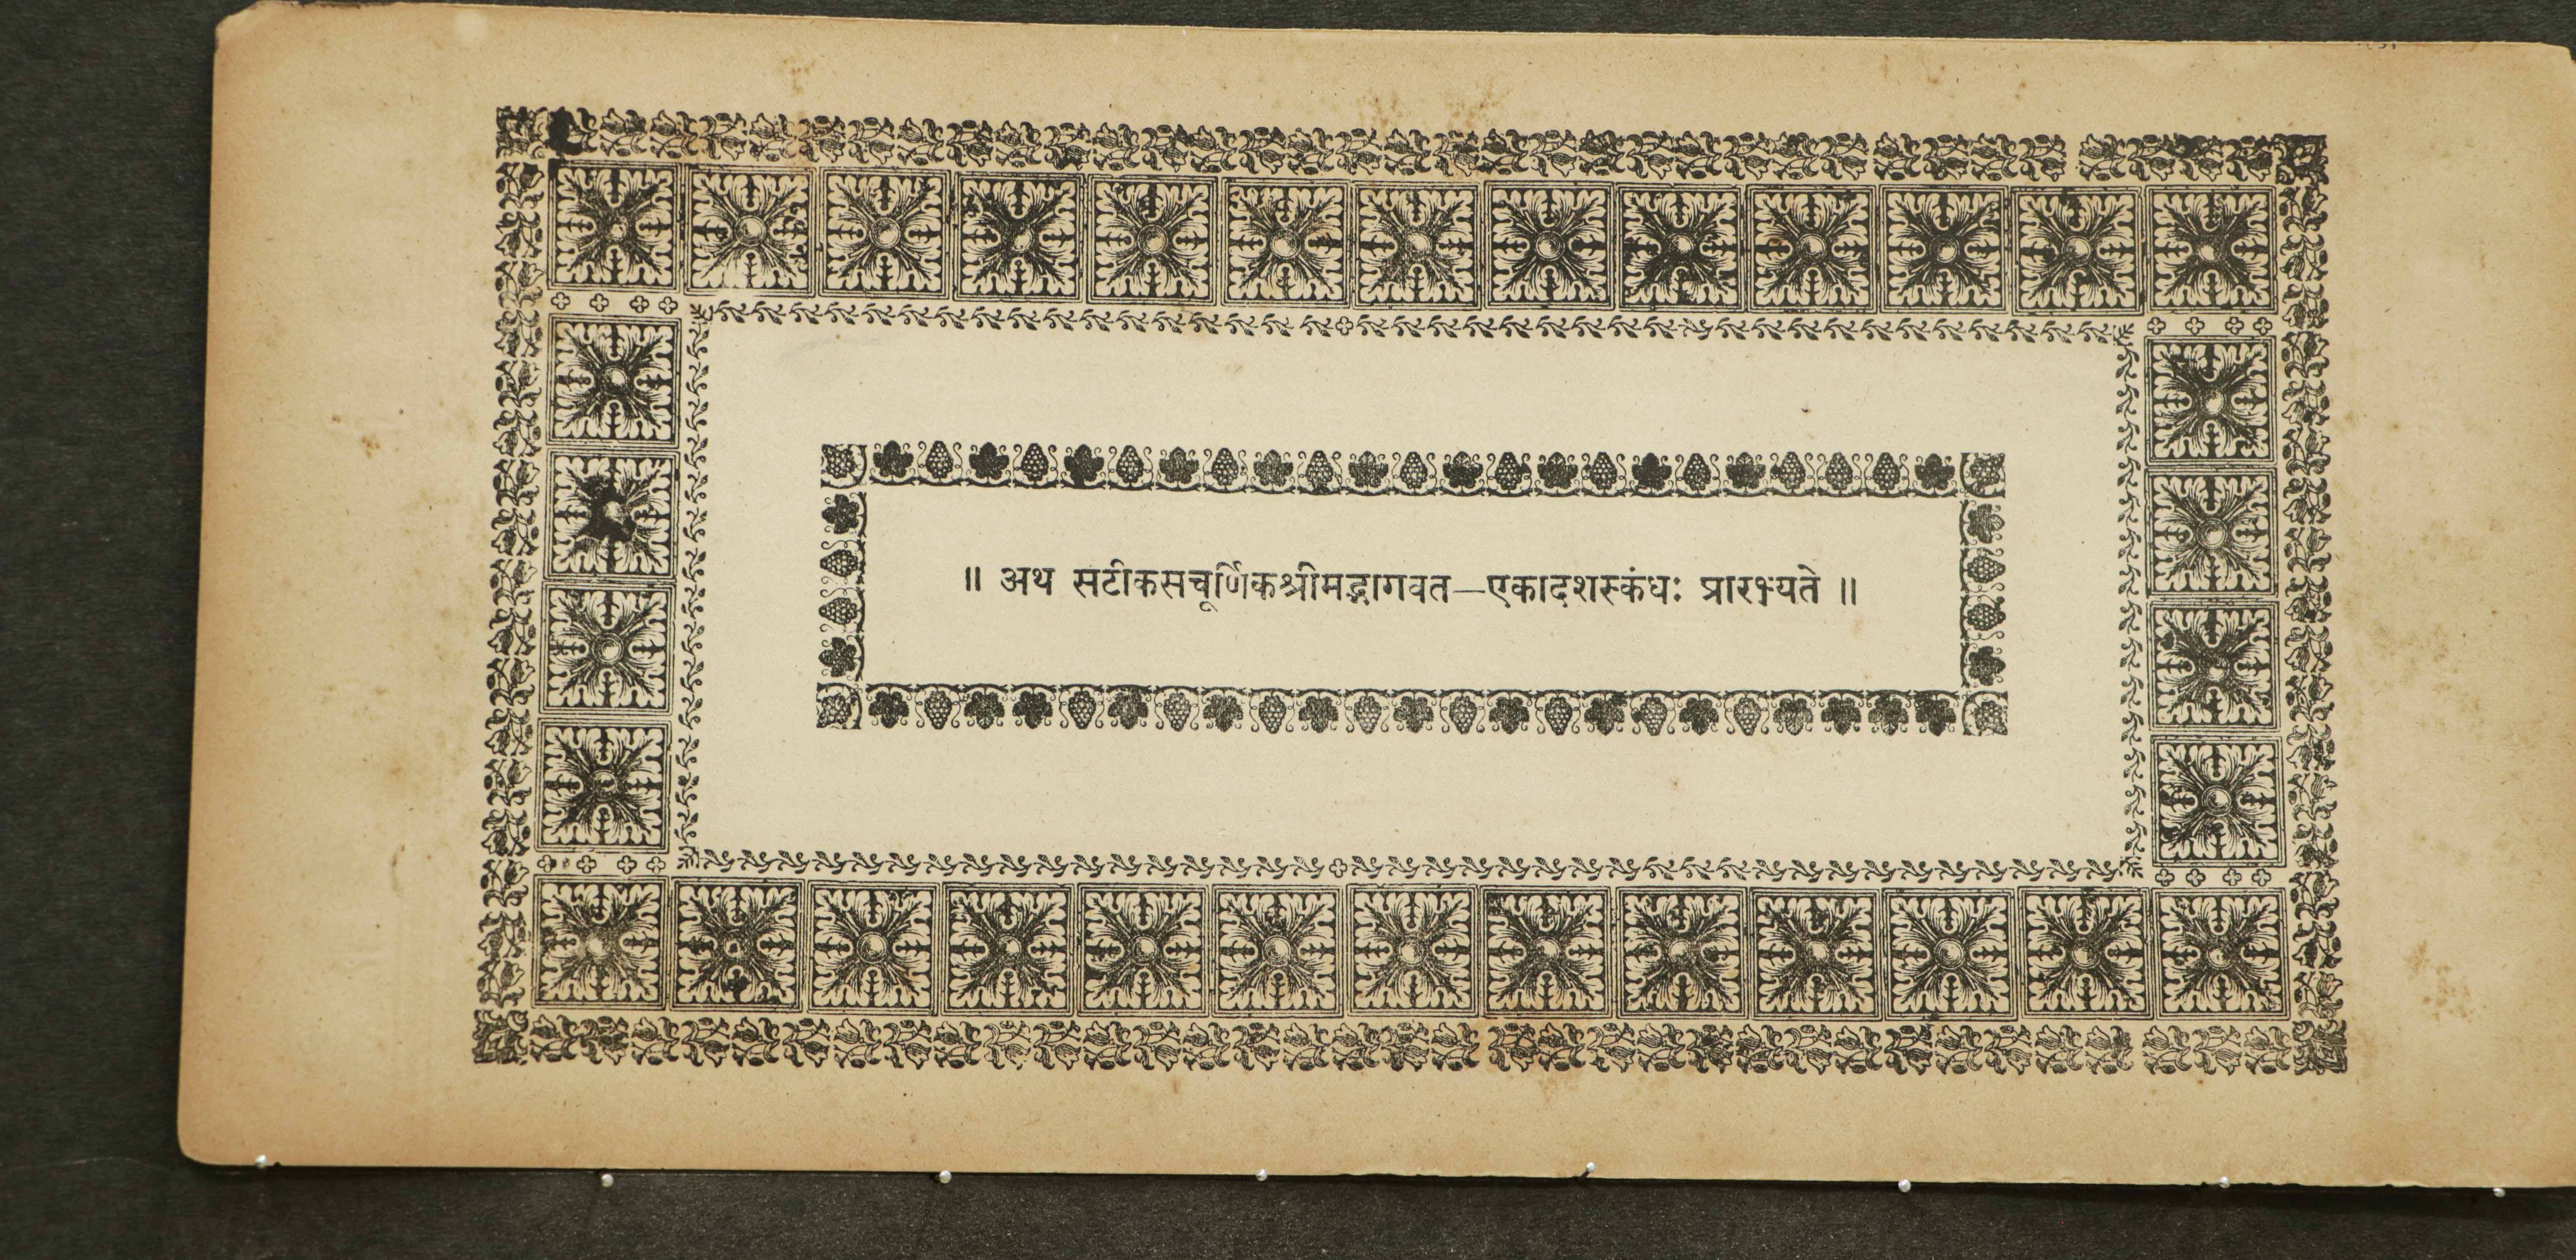 ॥ अथ सटीकसचूर्णिकश्रीमद्भागवत—एकादशस्कंधः प्रारभ्यते ॥